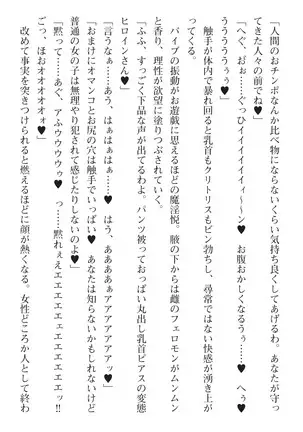 「人間のおチンポなんか比べ物にならないくらい気持ち良くしてあげるわ。あなたが守っ
てきた人々の前でね♥」
「へぐ、おぉ……ぐっひイイイイイィ～～ン♥　お腹おかしくなるぅ……♥　へぅ♥
うううううぅ♥」
　触手が体内で暴れ回ると乳首もクリトリスもビン勃ちし、尋常ではない快感が湧き上が
ってくる。
　バイブの振動がお遊戯に思えるほどの魔淫悦。腋の下からは雌のフェロモンがムンムン
と香り、理性が欲望に塗りつぶされていく。
「ふふ、すっごく下品な声が出てるわよ。パンツ被っておっぱい丸出し乳首ピアスの変態
ヒロインさん♥」
「言うなぁ……あう、はぁはぁ……♥　はう、ああああぁアアアアアアァ♥」
「おまけにオマンコとお尻の穴は触手でいっぱい♥　あなたは知らないかもしれないけど
普通の女の子は無理やり犯されて感じたりしないのよ♥」
「黙って……あぐ、あふウウウゥ♥　っ……黙れぇぇエエエエェエエエエエッ!!
ごっ、ほおオオオオォ♥」
　改めて事実を突きつけられると燃えるほどに顔が熱くなる。　女性どころか人として終わ